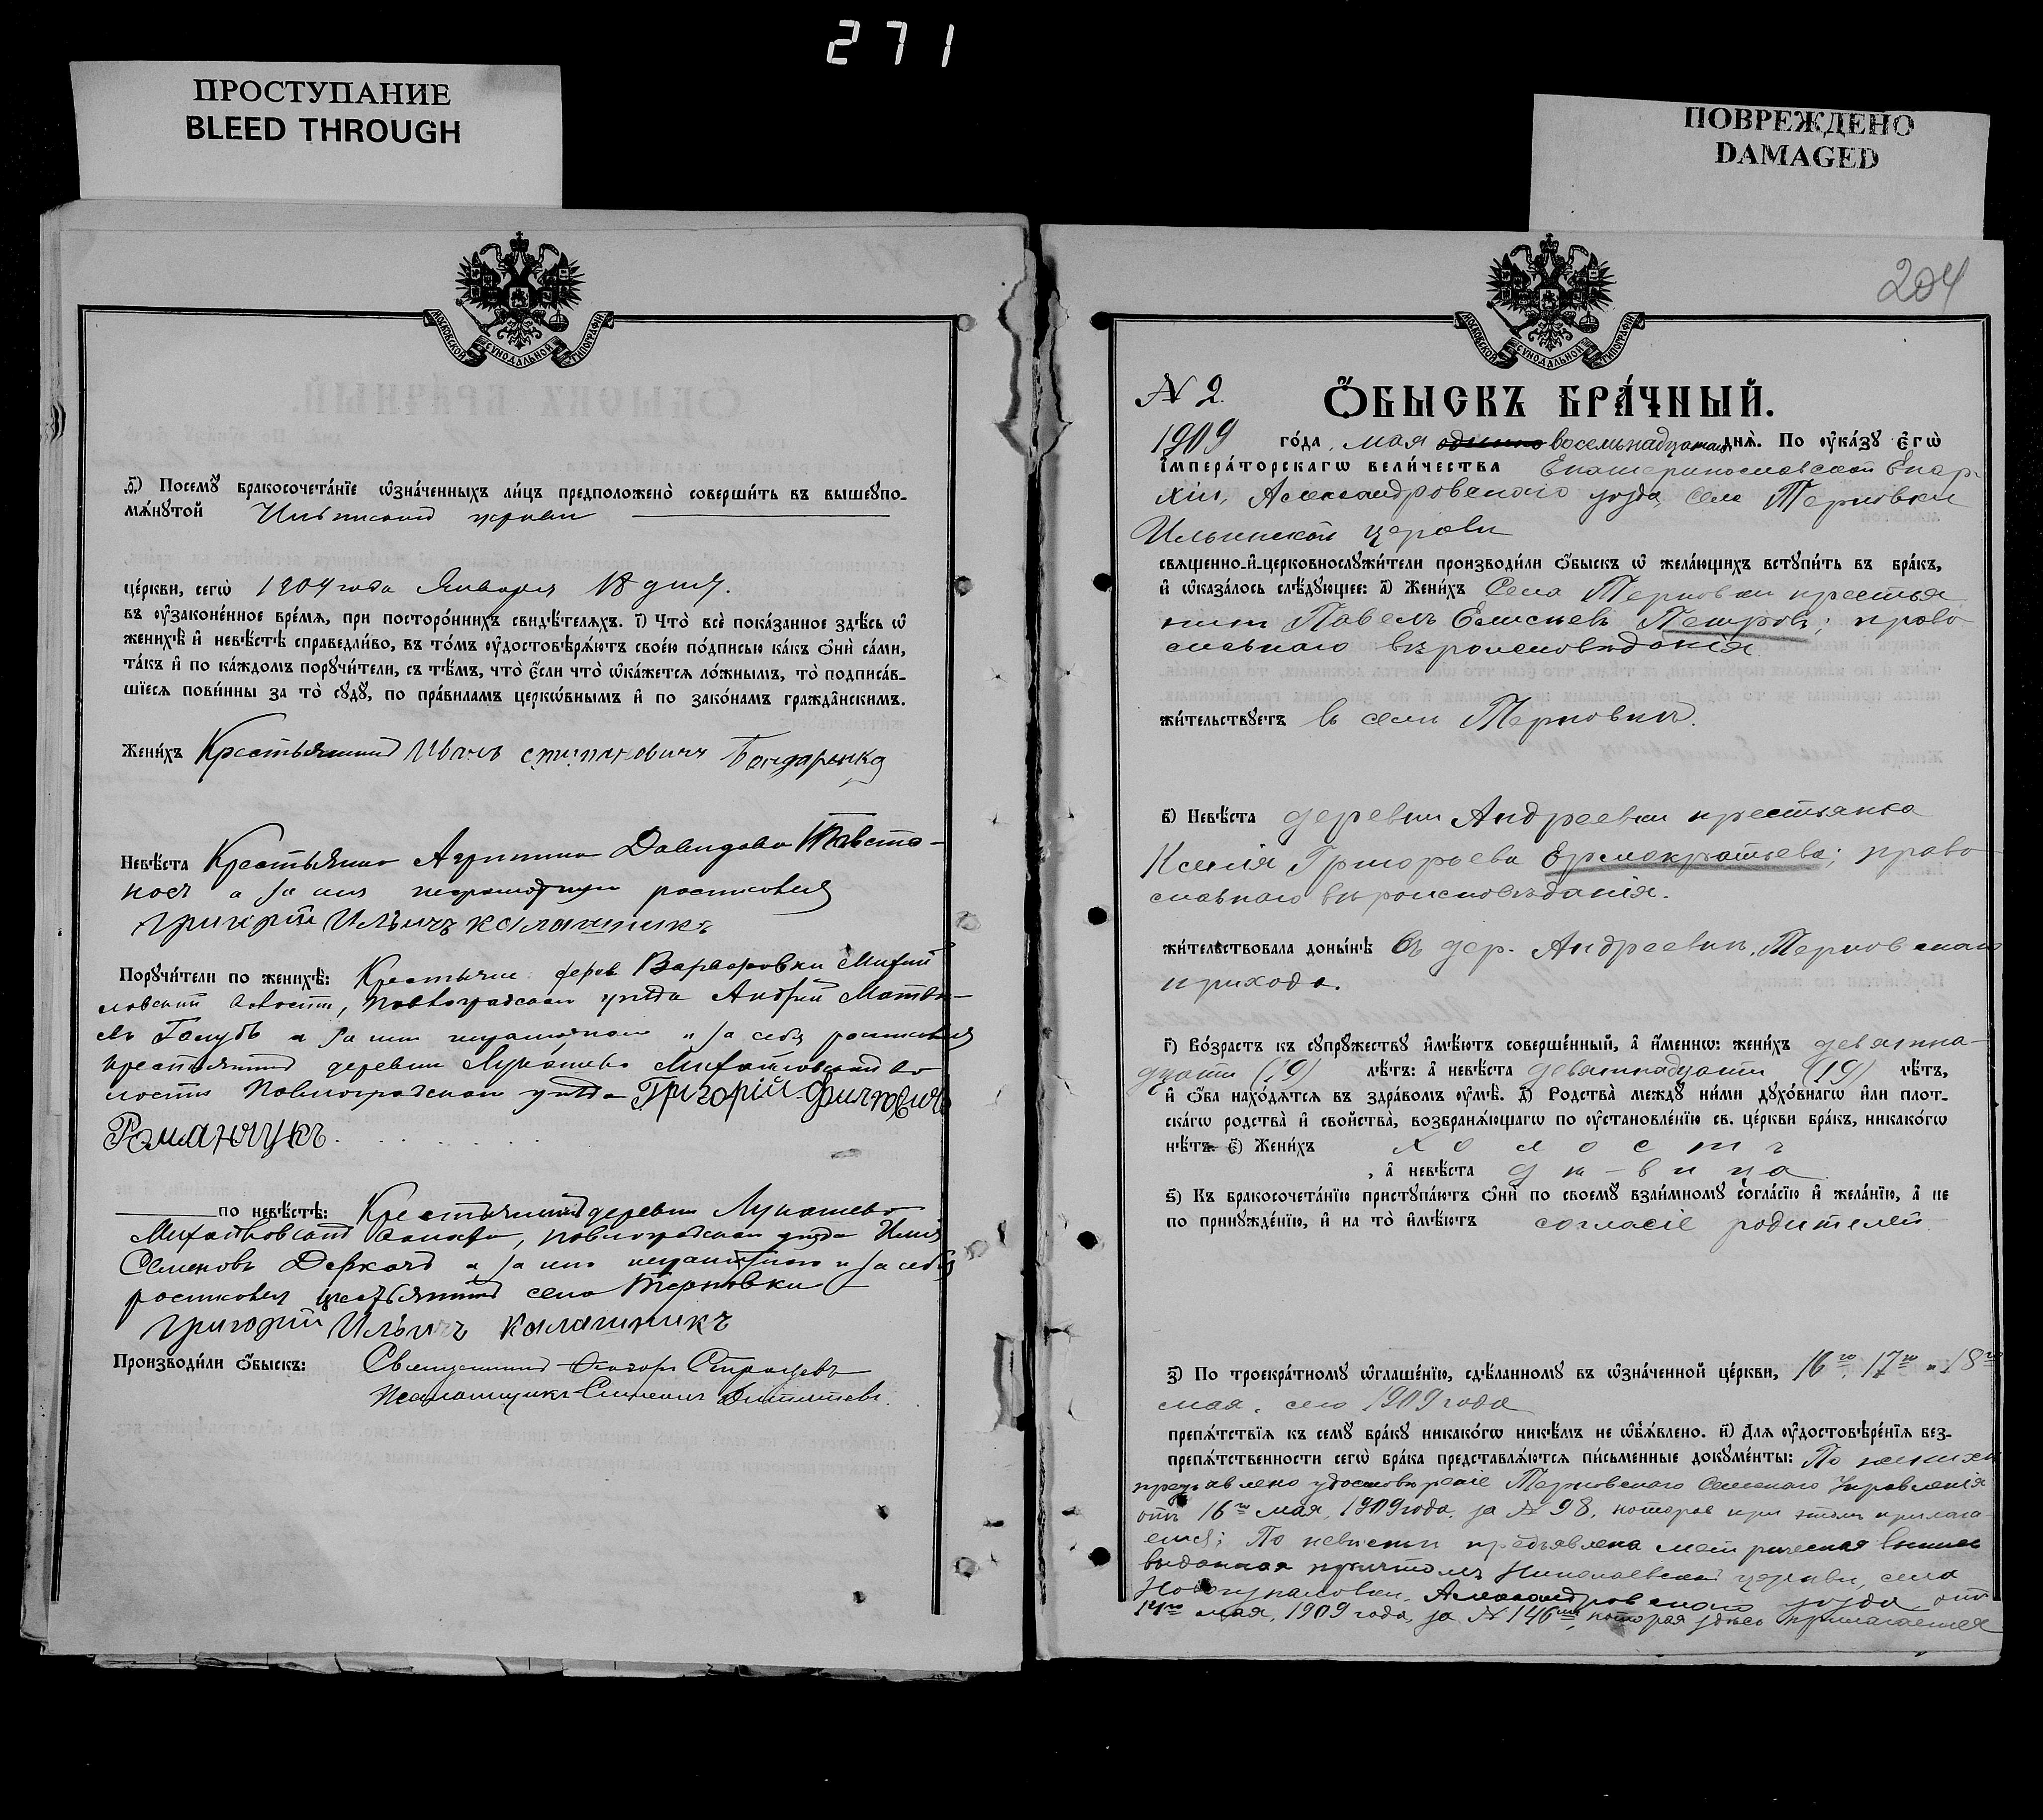 271
ПРОСТУПАНИЕ
BLEED THROUGH
ПОВРЕЖДЕНО
DAMAGED
МОСКОВСКОЙ СУНОДАЛЬНОЙ ТИПОГРАФІИ
ѳ҃) Посемꙋ̀ бракосочета́нїе ѡ҆зна́ченныхъ ли́цъ предположено̀ соверши́ть въ вышеꙋпо-
мѧ́нꙋтой Ильинской церкви
це́ркви, сегѡ̀ 1909 года Января 18 дня.
въ ᲂу҆законе́нное вре́мѧ, при посторо́ннихъ свидѣ́телѧхъ. і҃) Что̀ всѐ пока́занное здѣ́сь ѡ҆
женихѣ̀ и҆ невѣ́стѣ справедли́во, въ то́мъ ᲂу҆достовѣрѧ́ютъ свое́ю по́дписью ка́къ ѻ҆нѝ са́ми,
та́къ и҆ по ка́ждомъ порꙋчи́тели, съ тѣ́мъ, что̀ є҆́сли что̀ ѡ҆ка́жетсѧ ло́жнымъ, то̀ подписа́в-
шїесѧ пови́нны за то̀ сꙋдꙋ̀, по пра́виламъ церко́внымъ и҆ по зако́намъ гражда́нскимъ.
Жени́хъ Крестьянинъ Иванъ Степановичъ Бондаренко
Невѣ́ста Крестьянка Агрипина Давидова Товсто-
ноѕ а за нихъ неграмотныхъ росписовся
Григорій Ильичъ Калашникъ
Порꙋчи́тели по женихѣ̀: Крестьяне дерев Варваровки Михай
ловской волости, Павлоградскаго уѣзда Андрей Матве-
евъ Голубъ а за него неграмотнаго и за себя росписовся
крестьянинъ деревни Лукашево Михайловской во
лости Павлоградскаго уѣзда Григорій
Романчукъ.
по невѣ́стѣ: Крестьянинъ деревни Лукашево
Михайловской волости, Павлоградскаго уѣзда Илія
Семеновъ Деркачъ а за него неграмотнаго и за себя
росписовся крестьянинъ села Терновки
Григорій Ильичъ Калашникъ
Производи́ли ѻ҆́быскъ: Священникъ
Псаломщикъ
204
МОСКОВСКОЙ СУНОДАЛЬНОЙ ТИПОГРАФІИ
№ 2. Ѻ҆́БЫСКЪ БРА́ЧНЫЙ.
1909 го́да мая восемьнадцатаго днѧ̀. По ᲂу҆ка́зꙋ Є҆гѡ̀
І҆мпера́торскагѡ вели́чества Екатеринославской Епар-
хіи, Александровскаго уѣзда, села Терновки
Ильинской церкви
свѧще́нно-и҆-церковнослꙋжи́тели производи́ли ѻ҆́быскъ ѡ҆ жела́ющихъ встꙋпи́ть въ бра́къ,
и҆ ѡ҆каза́лось слѣ́дꙋющее: а҃) Жени́хъ Села Терновки крестья
нинъ Павелъ Елисеевъ Петровъ; право
славнаго вѣроисповѣданія
жи́тельствꙋетъ въ селѣ Терновкѣ.
в҃) Невѣ́ста деревни Андреевки крестьянка
Ксенія Григорьева Ермократьева; право
славнаго вѣроисповѣданія.
жи́тельствовала доны́нѣ въ дер. Андреевкѣ, Терновскаго
прихода.
г҃) Во́зрастъ къ сꙋпрꙋ́жествꙋ и҆мѣ́ютъ соверше́нный, а҆ и҆́менно: жени́хъ девятна-
дцати (19) лѣ́тъ: а҆ невѣ́ста девятнадцати (19) лѣ́тъ,
и҆ ѻ҆́ба нахо́дѧтсѧ въ здра́вомъ ᲂу҆мѣ̀. д҃) Родства̀ междꙋ ни́ми дꙋхо́внагѡ и҆лѝ плот-
ска́гѡ родства̀ и҆ сво́йства̀, возбранѧ́ющагѡ по ᲂу҆становле́нїю св. це́ркви бра́къ, никако́гѡ
нѣ́тъ. є҃) Жени́хъ холостъ
, а҆ невѣ́ста дѣвица
ѕ҃) Къ бракосочета́нїю пристꙋпа́ютъ ѻ҆нѝ по своемꙋ̀ взаи́мномꙋ согла́сїю и҆ жела́нїю, а҆ не
по принꙋжде́нїю, и҆ на то̀ и҆мѣ́ютъ согласіе родителей
з҃) По троекра́тномꙋ ѡ҆глаше́нїю, сдѣ́ланномꙋ въ ѡ҆зна́ченной це́ркви, 16го, 17го и 18го
мая, сего 1909 года
препѧ́тствїѧ къ семꙋ̀ бра́кꙋ никако́гѡ никѣ́мъ не ѡ҆б̾ѧ́влено. и҃) Длѧ ᲂу҆достовѣре́нїѧ без-
препѧ́тственности сегѡ̀ бра́ка представлѧ́ютсѧ пи́сьменные докꙋме́нты: По женихѣ
представлено удостовѣреніе Терновскаго Сельскаго Управленія
отъ 16го мая, 1909 года, за № 98, которое при этомъ прилага-
ется; По невѣстѣ предъявлена метрическая выпись
выданная причтомъ Николаевской церкви, села
Александровскаго уѣзда отъ
14го мая, 1909 года, за № 146мъ, которая здѣсь прилагается